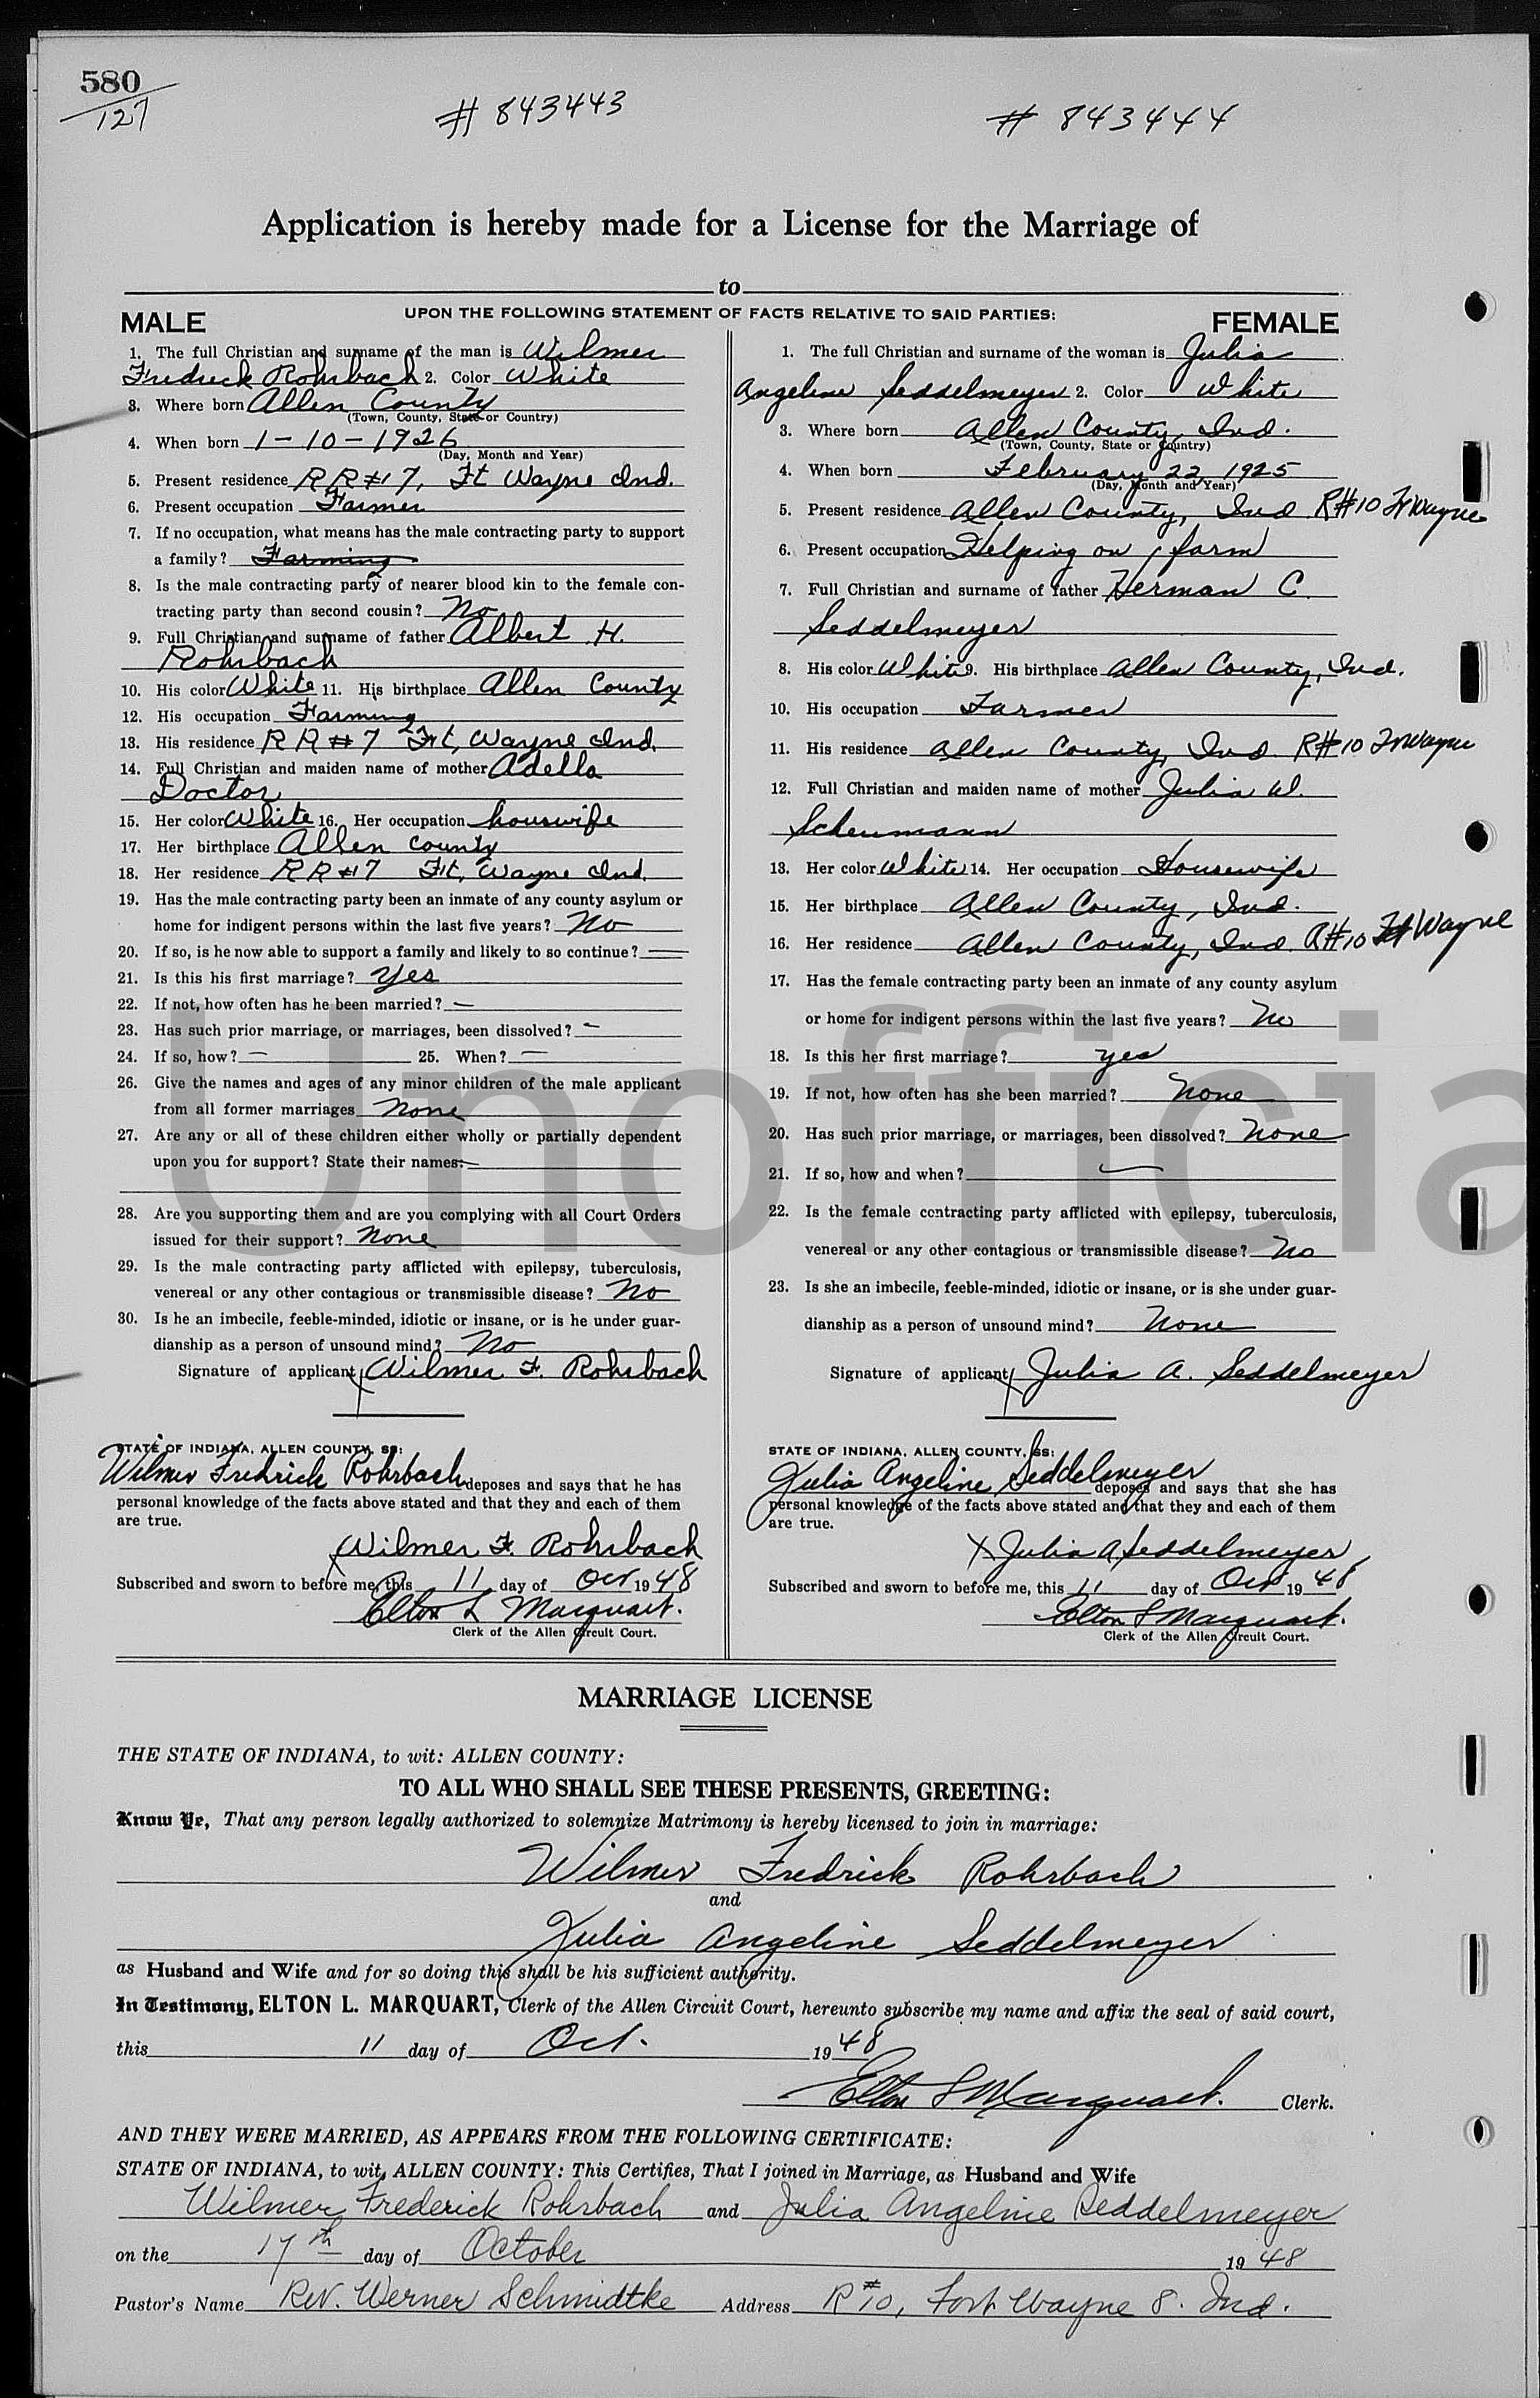 580
127
# 843443
# 843444
Application is hereby made for a License for the Marriage of
to
UPON THE FOLLOWING STATEMENT OF FACTS RELATIVE TO SAID PARTIES:
MALE
1. The full Christian and surname of the man is Wilmer
Fredrick Rohrbach 2. Color White
3. Where born Allen County
(Town, County, State or Country)
4. When born 1-10-1926
(Day, Month and Year)
5. Present residence RR#7, Ft Wayne Ind.
6. Present occupation Farmer
7. If no occupation, what means has the male contracting party to support
a family? Farming
8. Is the male contracting party of nearer blood kin to the female con-
tracting party than second cousin? No
9. Full Christian and surname of father Albert H.
Rohrbach
10. His color White 11. His birthplace Allen County
12. His occupation Farming
13. His residence RR#7 Ft, Wayne Ind.
14. Full Christian and maiden name of mother Adella
Doctor
15. Her color White 16. Her occupation houswife
17. Her birthplace Allen County
18. Her residence RR#7 Ft, Wayne Ind.
19. Has the male contracting party been an inmate of any county asylum or
home for indigent persons within the last five years? No
20. If so, is he now able to support a family and likely to so continue? —
21. Is this his first marriage? Yes
22. If not, how often has he been married? —
23. Has such prior marriage, or marriages, been dissolved? —
24. If so, how? — 25. When? —
26. Give the names and ages of any minor children of the male applicant
from all former marriages None
27. Are any or all of these children either wholly or partially dependent
upon you for support? State their names: —
28. Are you supporting them and are you complying with all Court Orders
issued for their support? None
29. Is the male contracting party afflicted with epilepsy, tuberculosis,
venereal or any other contagious or transmissible disease? No
30. Is he an imbecile, feeble-minded, idiotic or insane, or is he under guar-
dianship as a person of unsound mind? No
Signature of applicant Wilmer F. Rohrbach
STATE OF INDIANA, ALLEN COUNTY, SS:
Wilmer Fredrick Rohrbach deposes and says that he has
personal knowledge of the facts above stated and that they and each of them
are true.
Wilmer F. Rohrbach
Subscribed and sworn to before me, this 11 day of Oct 1948
Elton L Marquart.
Clerk of the Allen Circuit Court.
FEMALE
1. The full Christian and surname of the woman is Julia
Angeline Seddelmeyer 2. Color White
3. Where born Allen County, Ind.
(Town, County, State or Country)
4. When born February 22, 1925
(Day, Month and Year)
5. Present residence Allen County, Ind. R#10 Ft Wayne
6. Present occupation Helping on farm
7. Full Christian and surname of father Herman C.
Seddelmeyer
8. His color White 9. His birthplace Allen County, Ind.
10. His occupation Farmer
11. His residence Allen County, Ind. R#10 Ft Wayne
12. Full Christian and maiden name of mother Julia W.
Scheumann
13. Her color White 14. Her occupation Housewife
15. Her birthplace Allen County, Ind.
16. Her residence Allen County, Ind. R#10 Ft Wayne
17. Has the female contracting party been an inmate of any county asylum
or home for indigent persons within the last five years? No
18. Is this her first marriage? yes
19. If not, how often has she been married? None
20. Has such prior marriage, or marriages, been dissolved? None
21. If so, how and when? —
22. Is the female contracting party afflicted with epilepsy, tuberculosis,
venereal or any other contagious or transmissible disease? No
23. Is she an imbecile, feeble-minded, idiotic or insane, or is she under guar-
dianship as a person of unsound mind? None
Signature of applicant Julia A. Seddelmeyer
STATE OF INDIANA, ALLEN COUNTY, SS:
Julia Angeline Seddelmeyer
deposes and says that she has
personal knowledge of the facts above stated and that they and each of them
are true.
X Julia A Seddelmeyer
Subscribed and sworn to before me, this 11 day of Oct 1948
Elton L Marquart.
Clerk of the Allen Circuit Court.
MARRIAGE LICENSE
THE STATE OF INDIANA, to wit: ALLEN COUNTY:
TO ALL WHO SHALL SEE THESE PRESENTS, GREETING:
Know Ye, That any person legally authorized to solemnize Matrimony is hereby licensed to join in marriage:
Wilmer Fredrick Rohrbach
and
Julia Angeline Seddelmeyer
as Husband and Wife and for so doing this shall be his sufficient authority.
In Testimony, ELTON L. MARQUART, Clerk of the Allen Circuit Court, hereunto subscribe my name and affix the seal of said court,
this 11 day of Oct. 1948
Elton L Marquart. Clerk.
AND THEY WERE MARRIED, AS APPEARS FROM THE FOLLOWING CERTIFICATE:
STATE OF INDIANA, to wit, ALLEN COUNTY: This Certifies, That I joined in Marriage, as Husband and Wife
Wilmer Frederick Rohrbach and Julia Angeline Seddelmeyer
on the 17th day of October 1948
Pastor's Name Rev. Werner Schmidtke Address R#10, Fort Wayne 8. Ind.
Unofficia